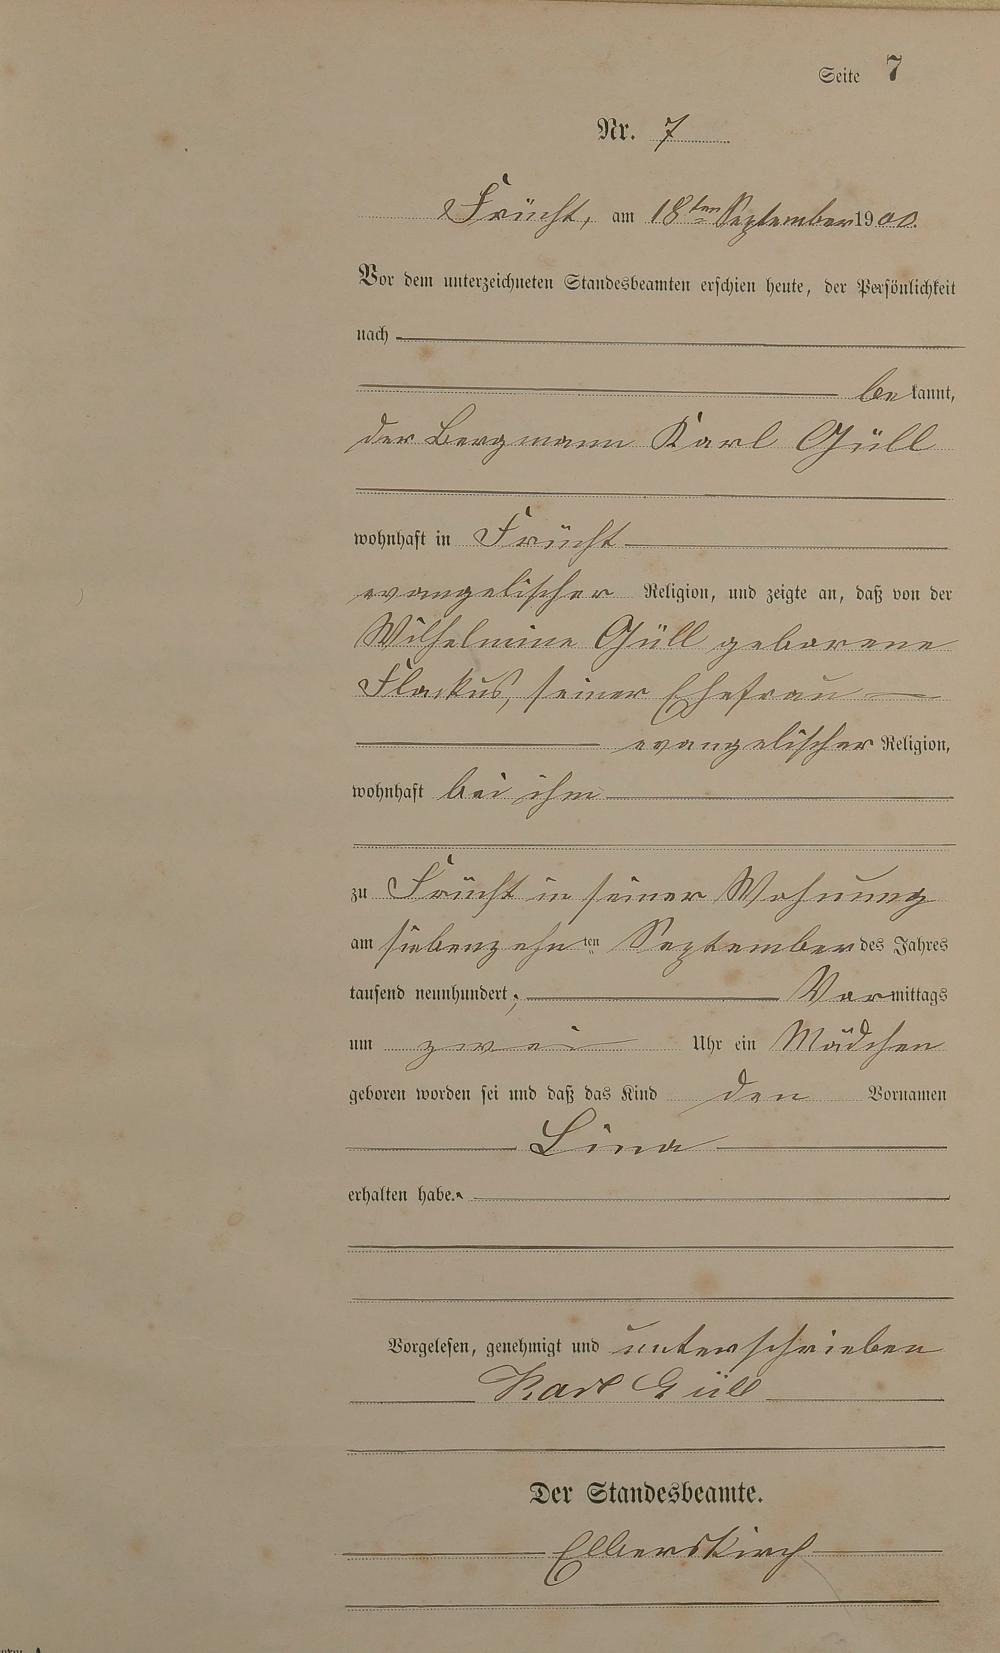 Seite 7
Nr. 7
Frücht, am 18ten September 1900.
Vor dem unterzeichneten Standesbeamten erschien heute, der Persönlichkeit
nach
bekannt,
der Bergmann Karl Güll
wohnhaft in Frücht
evangelischer Religion, und zeigte an, daß von der
Wilhelmine Güll geborene
Flackus, seiner Ehefrau
evangelischer Religion,
wohnhaft bei ihm
zu Frücht in seiner Wohnung
am siebenzehnten September des Jahres
tausend neunhundert, Vormittags
um zwei Uhr ein Mädchen
geboren worden sei und daß das Kind den Vornamen
Lina
erhalten habe.
Vorgelesen, genehmigt und unterschrieben
Karl Güll
Der Standesbeamte.
Elberskirch